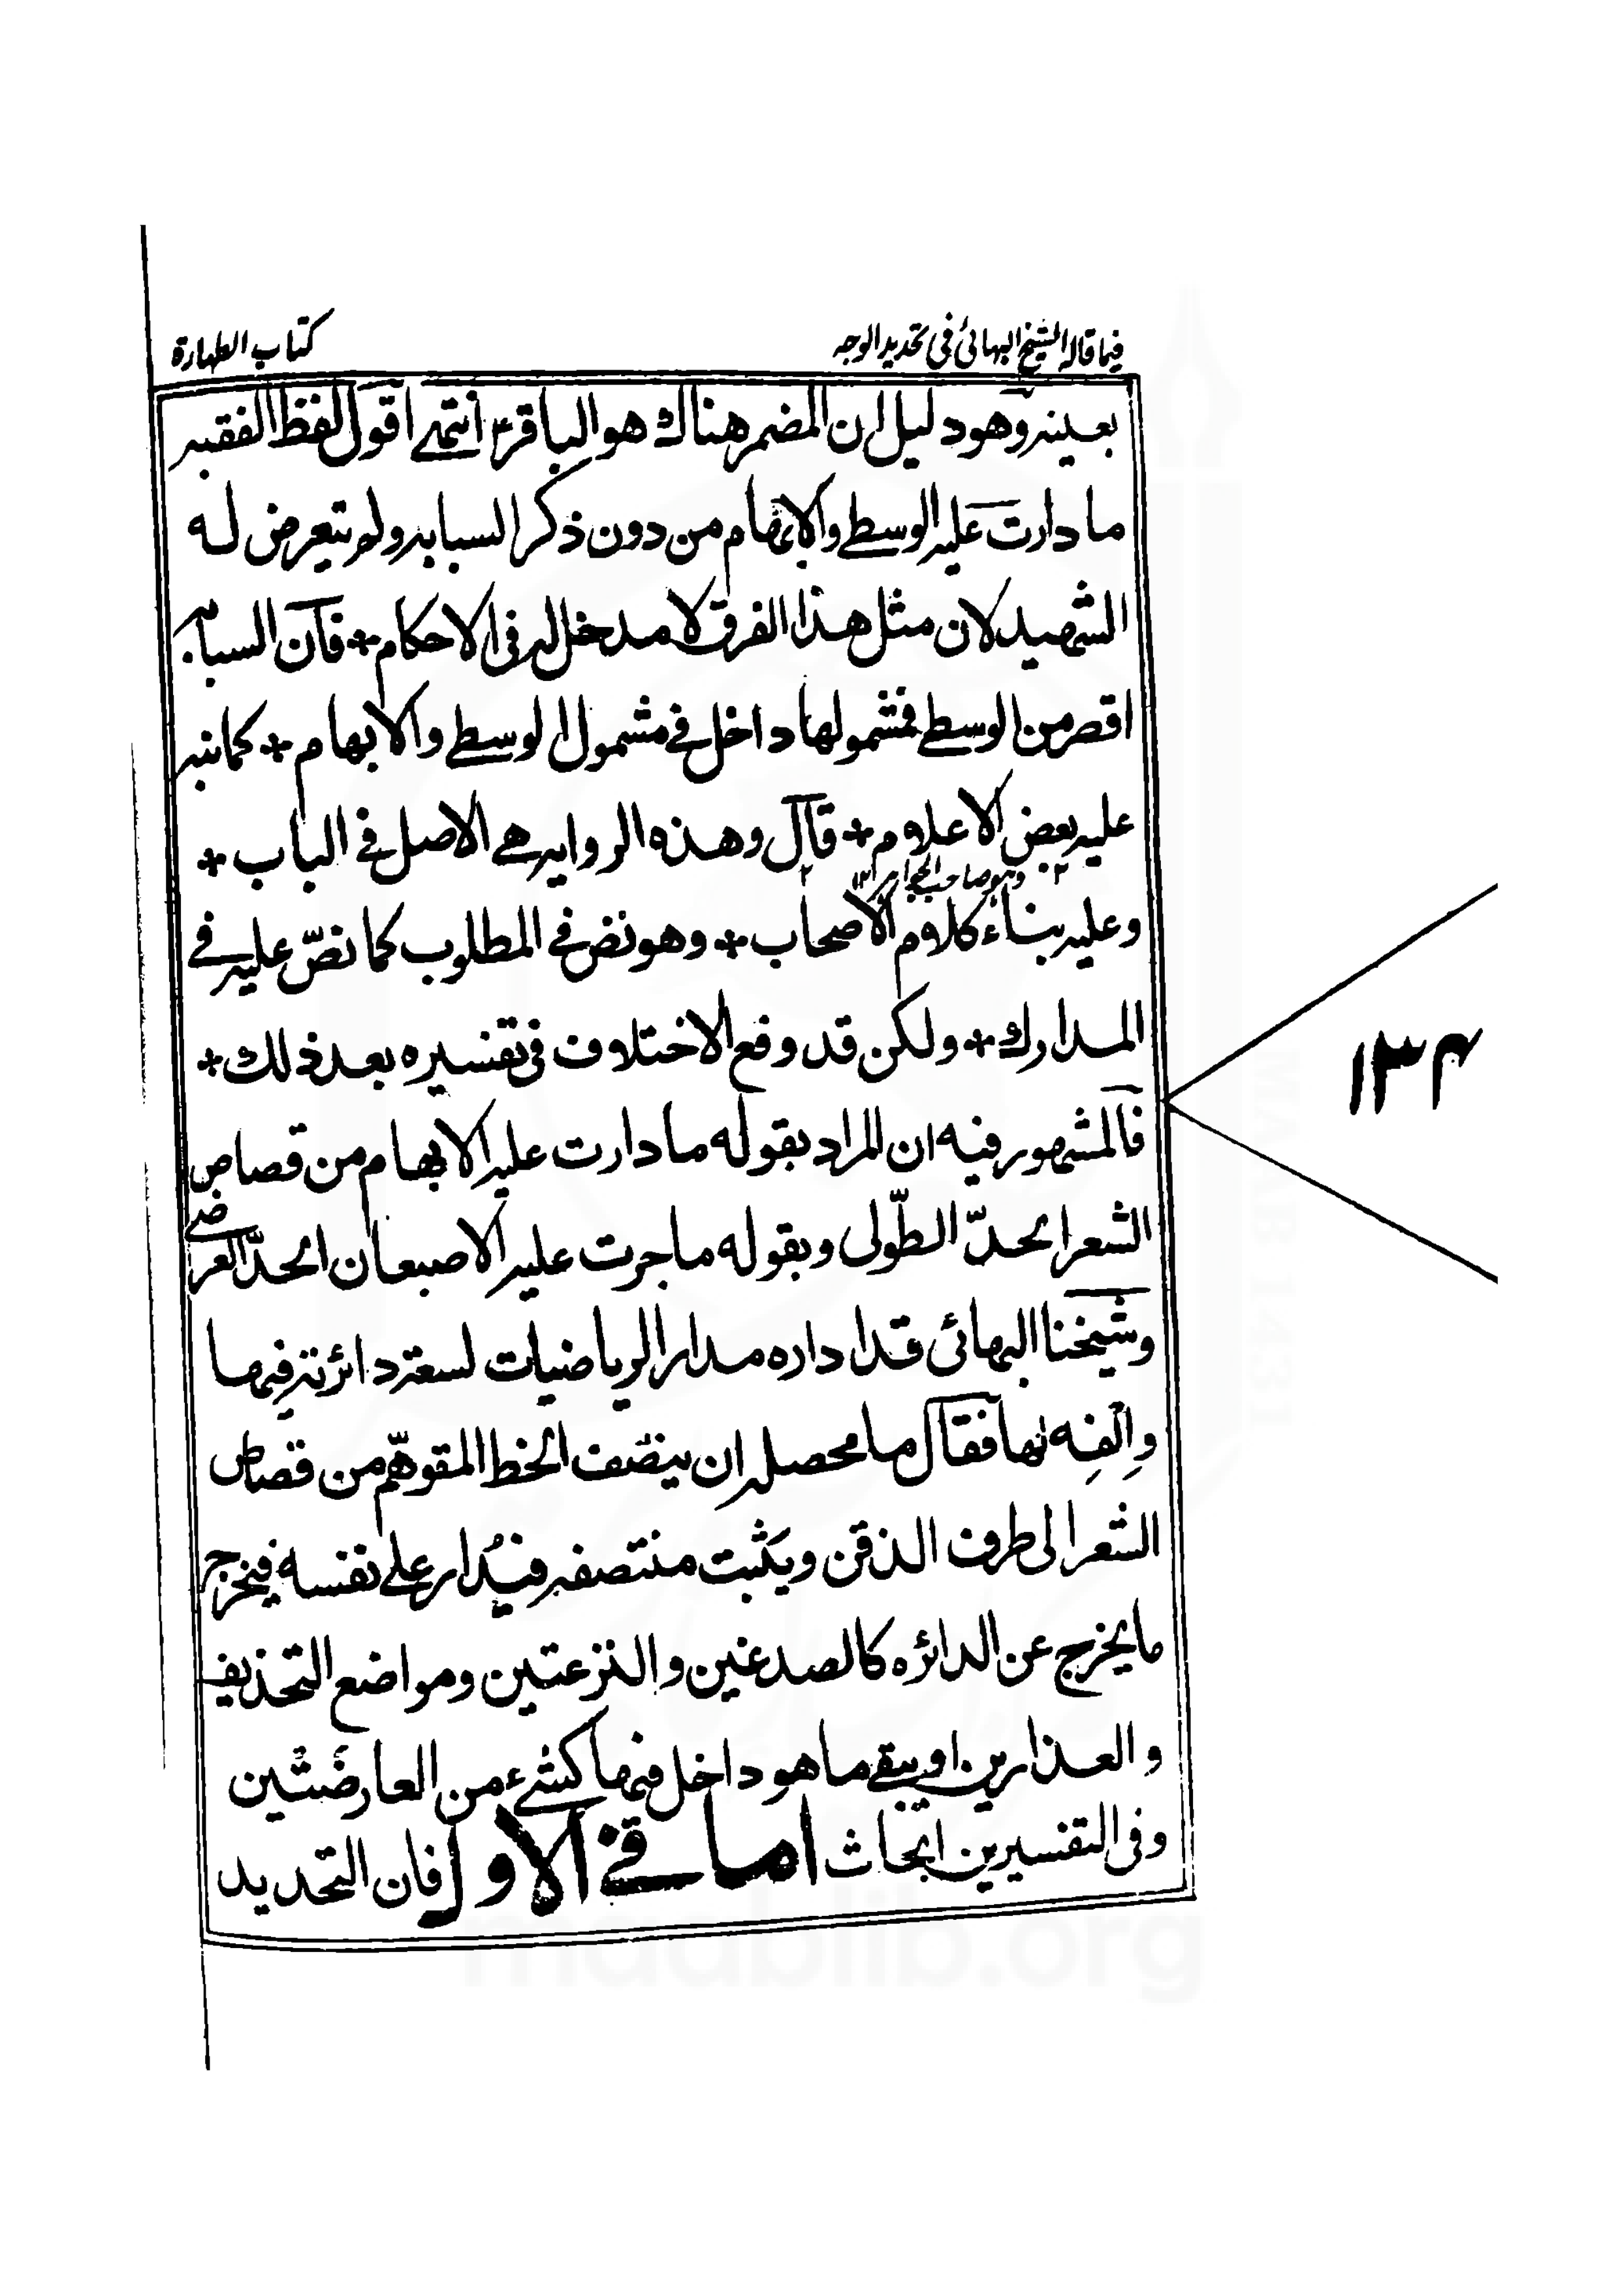 فيما قاله الشيخ البهائي في تحديد الوجه
كتاب الطهارة
بعينه وهو دليل ان المضمر هناك هو الباقر ع انتهى اقول لفظ الفقيه
ما دارت عليه الوسطى والابهام من دون ذكر السبابه ولم يتعرض له
الشهيد لان مثل هذا الفرق لا مدخل له فى الاحكام + فان السبابه
اقصر من الوسطى فمشمولها داخل فى مشمول الوسطى والابهام + كما نبه
عليه بعض الاعلام + قال وهذه الروايه هى الاصل فى الباب +
٢ وهو صاحب الجواهر ١٢
وعليه بناء كلام الاصحاب + وهو نص فى المطلوب كما نصّ عليه فى
المدارك + ولكن قد وقع الاختلاف فى تفسيره بعد ذلك +
فالمشهور فيه ان المراد بقوله ما دارت عليه الابهام من قصاص
الشعر الحدّ الطّولى وبقوله ما جرت عليه الاصبعان الحدّ العرضى
وشيخنا البهائى قد اداره مدار الرياضيات لسعة دائرته فيها
واِلفِه بها فقال ما محصله ان ينصّف الخط المتوهّم من قصاص
الشعر الى طرف الذقن ويثبت منتصفه فيُدار على نفسه فيخرج
ما يخرج عن الدائره كالصدغين والنزعتين ومواضع التحذيف
والعذارين او يبقى ما هو داخل فيها كشىء من العارضَين
وفى التفسيرين ابحاث اما فى الاول فان التحديد
١٣٤
MAAB 1431
maablib.org